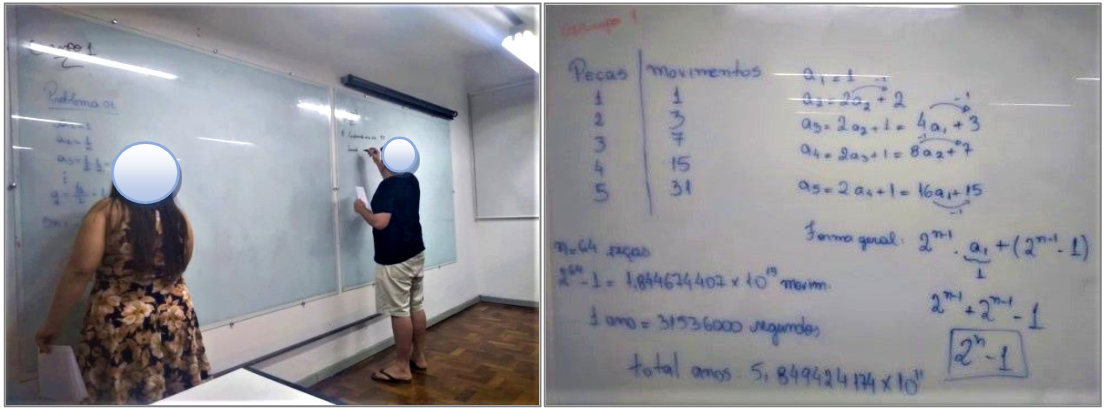 Grupo 1
Problema 01
Peças | movimentos
1 | 1
2 | 3
3 | 7
4 | 15
5 | 31
a₁ = 1
a₂ = 2a₂ + 2
a₃ = 2a₂ + 1 = 4a₁ + 3
a₄ = 2a₃ + 1 = 8a₂ + 7
a₅ = 2a₄ + 1 = 16a₁ + 15
Forma geral: 2ⁿ⁻¹ · a₁ + (2ⁿ⁻¹ - 1)
1
n=64 peças
2⁶⁴ - 1 = 1,844674407 × 10¹⁹ movim.
2ⁿ⁻¹ + 2ⁿ⁻¹ - 1
1 ano = 31536000 segundos
2ⁿ - 1
total anos: 5,849424174 × 10¹¹